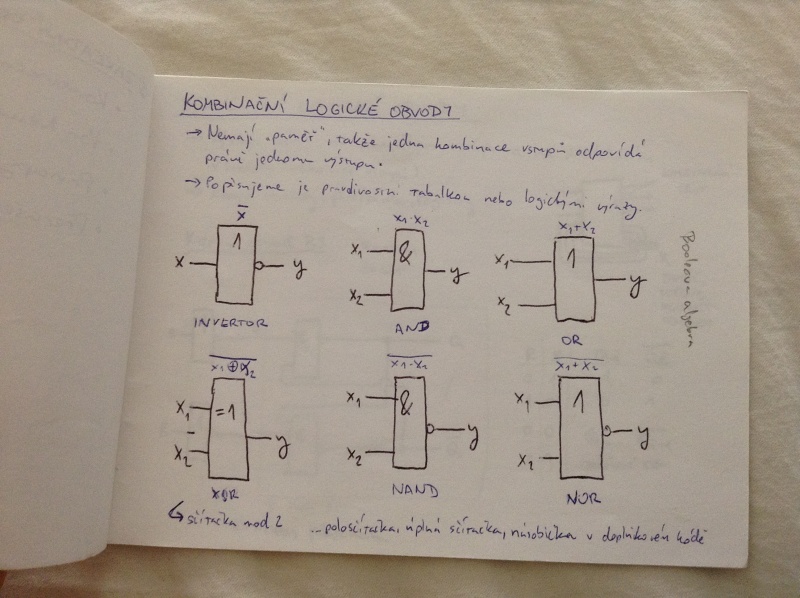 KOMBINAČNÍ LOGICKÉ OBVODY
→ Nemají „paměť“, takže jedna kombinace vstupů odpovídá
právě jednomu výstupu.
→ Popisujeme je pravdivostní tabulkou nebo logickými výrazy.
x̅
x₁·x₂
x₁+x₂
1
&
1
x
y
x₁
x₂
y
x₁
x₂
y
INVERTOR
AND
OR
Booleova algebra
x₁⊕x₂
x₁·x₂
x₁+x₂
=1
&
1
x₁
x₂
y
x₁
x₂
y
x₁
x₂
y
XOR
NAND
NOR
↳ sčítačka mod 2 ...položčítačka, úplná sčítačka, násobička v doplňkovém kódě